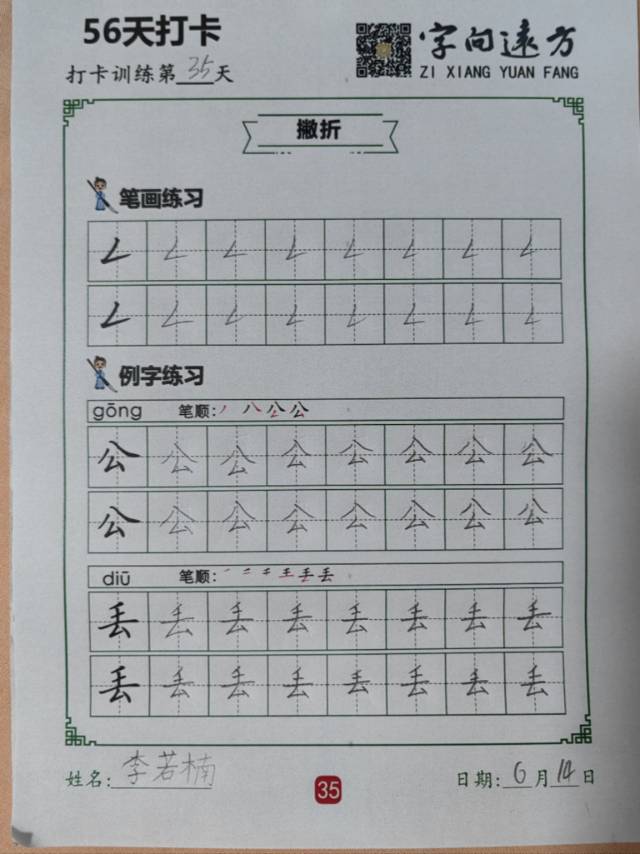 56天打卡
字向远方
打卡训练第35天
ZI XIANG YUAN FANG
撇折
笔画练习
𠃋𠃋𠃋𠃋𠃋𠃋𠃋𠃋
𠃋𠃋𠃋𠃋𠃋𠃋𠃋𠃋
例字练习
gōng 笔顺:丿 八 公 公
公公公公公公公公
公公公公公公公公
diū 笔顺:一 二 千 王 丢 丢
丢丢丢丢丢丢丢丢
丢丢丢丢丢丢丢丢
姓名:李若楠
35
日期:6月14日